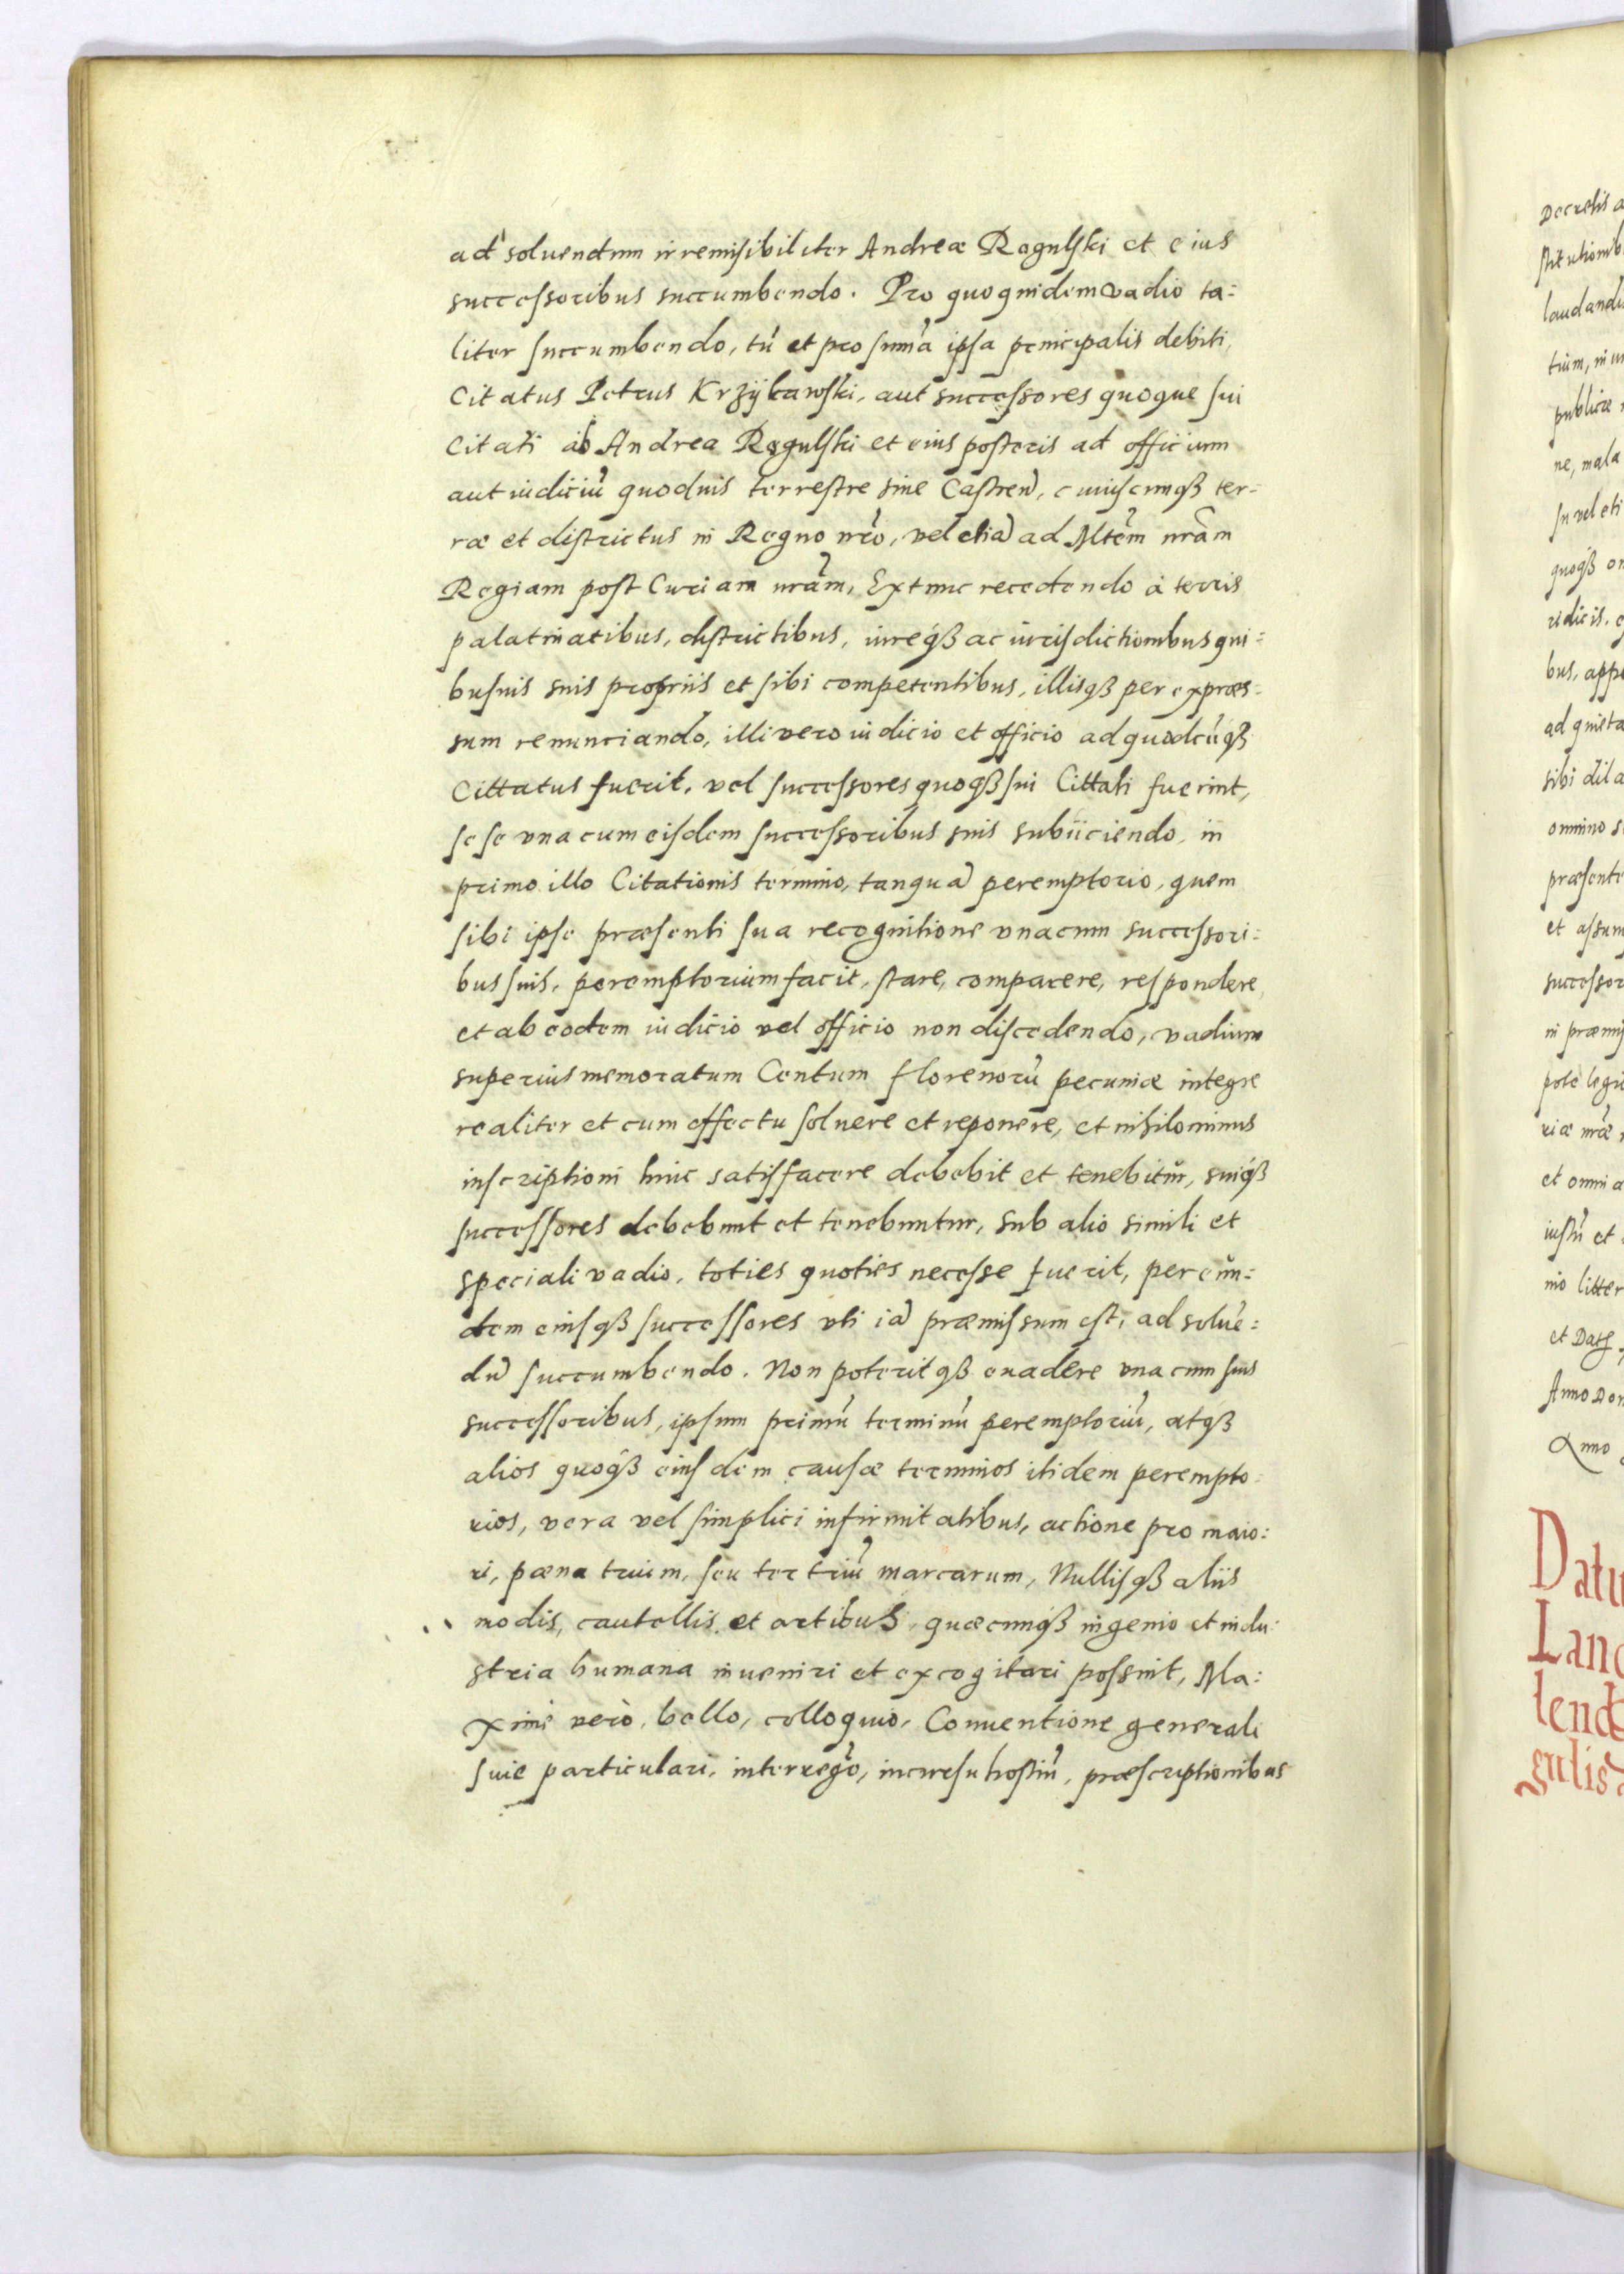 ad soluendum irremisibiliter Andreæ Rogulski et eius
successoribus succumbendo. Pro quoquidem vadio ta:
liter succumbendo, tũ et pro suma ipsa principalis debiti,
Citatus Petrus Krzÿkawski, aut successores quoque sui
Citati ab Andrea Rogulski et eius posteris ad officium
aut iudiciũ quoduis terrestre siue Castreñ, cuiuscumqꝫ ter-
ræ et districtus in Regno nrõ, vel etiã ad Mtẽm nrãm
Regiam post Curiam nrãm, Extunc recedendo à terris
palatinatibus, districtibus, iureqꝫ ac iurisdictionibus qui:
busuis suis propriis et sibi competentibus, illisqꝫ per expræs:
sum renunciando, illi vero iudicio et officio ad quodcũqꝫ
Cittatus fuerit, vel successores quoqꝫ sui Cittati fuerint,
se se vna cum eisdem successoribus suis subiiciendo, in
primo illo Citationis termino, tanquã peremptorio, quem
sibi ipse præsenti sua recognitione vnacum successori:
bus suis, peremptorium facit, stare, comparere, respondere,
et ab eodem iudicio vel officio non discedendo, vadium
superius memoratum Centum florenorũ pecuniæ integre
realiter et cum effectu soluere et reponere, et nihilominus
inscriptioni huic satisfacere debebit et tenebitur, suiqꝫ
successores debebunt et tenebuntur, sub alio simili et
speciali vadio, toties quoties necesse fuerit, per eun:
dem eiusqꝫ successores vti iã præmissum est, ad soluẽ:
dũ succumbendo. Non poteritqꝫ euadere vna cum suis
successoribus, ipsum primũ terminũ peremptoriũ, atqꝫ
alios quoqꝫ eiusdem causæ terminos itidem perempto:
rios, vera vel simplici infirmitatibus, actione pro maio:
ri, pœna trium, seu ter triũ marcarum, Nullisqꝫ aliis
modis, cautellis et artibus, quæcumqꝫ ingenio et indu:
stria humana inueniri et excogitari possint, Ma:
xime verò, bello, colloquio, Conuentione generali
siue particulari, interregõ, incursu hostiũ, præscriptionibus
Decretis
laudand
publicæ
ne, mala
su vel eti
bus, app
ad quieta
omnino
præsent
successor
in præmi
et omni
iustũ et
nio litter
Anno Do
Anno